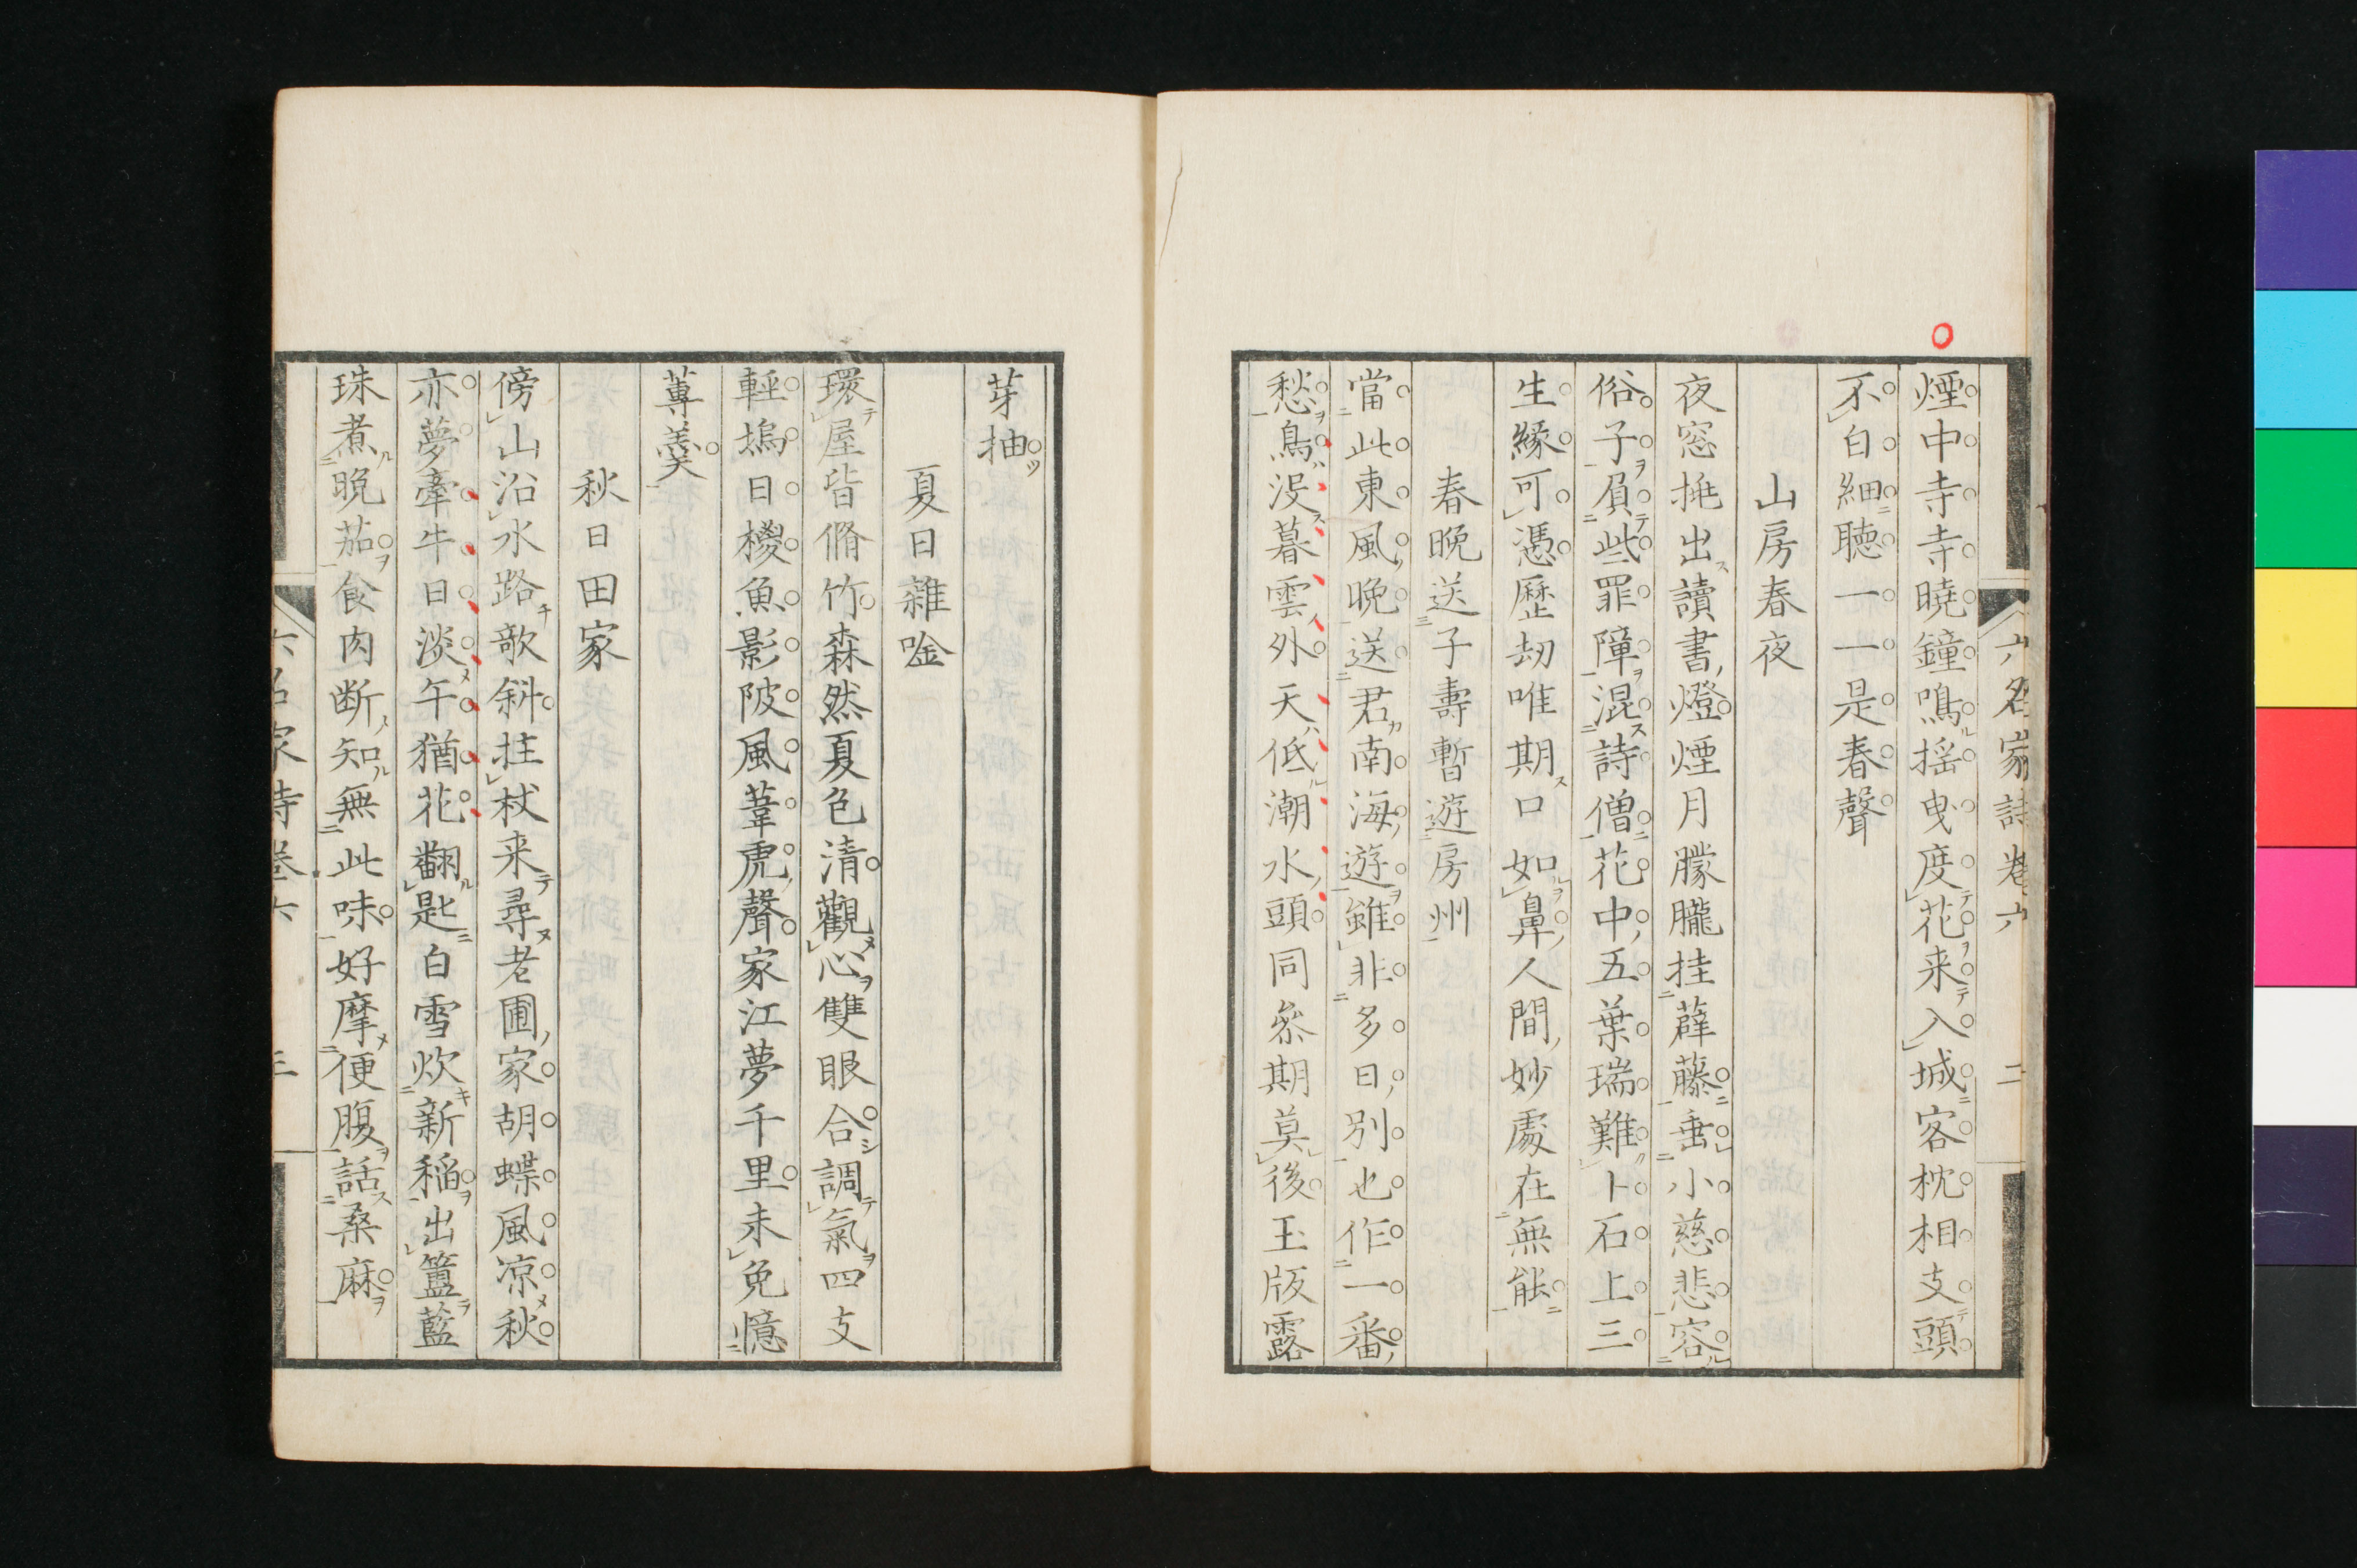 六名家詩卷六 二
煙中寺寺曉鐘鳴揺曳度花来入城客枕相支頭
不白細聴一一是春聲
山房春夜
夜窓拖出讀書燈煙月朦朧挂薜藤垂小慈悲容
俗子負些罪障混詩僧花中五葉瑞難卜石上三
生緣可憑歴劫唯期口如鼻人間妙處在無能
春晩送子壽暫遊房州
當此東風晩送君南海遊雖非多日別也作一番
愁鳥没暮雲外天低潮水頭同叅期莫後玉版露
芽抽
夏日雜唫
環屋皆脩竹森然夏色清觀心雙眼合調氣四支
輕塢日椶魚影陂風葦虎聲家江夢千里未免憶
蓴羮
秋日田家
傍山沿水路敧斜拄杖来尋老圃家胡蝶風凉秋
亦夢牽牛日淡午猶花翻匙白雪炊新稲出簠藍
珠煮晩茄食肉断知無此味好摩便腹話桑麻
六名家詩卷六 三